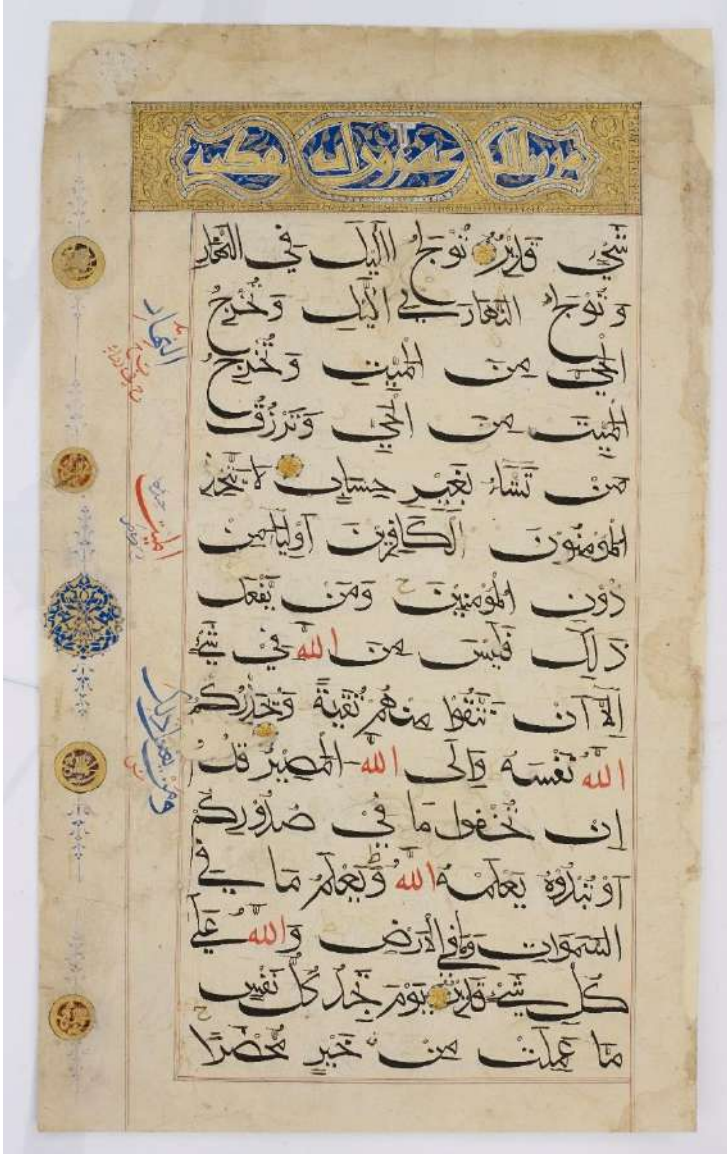 شيء قدير تولج الليل في النهار
وتولج النهار في الليل وتخرج
الحي من الميت وتخرج
الميت من الحي وترزق
من تشاء بغير حساب لا يتخذ
المؤمنون الكافرين أولياء من
دون المؤمنين ومن يفعل
ذلك فليس من الله في شيء
إلا أن تتقوا منهم تقية ويحذركم
الله نفسه وإلى الله المصير قل
إن تخفوا ما في صدوركم
أو تبدوه يعلمه الله ويعلم ما في
السموات وما في الأرض والله على
كل شيء قدير يوم تجد كل نفس
ما عملت من خير محضرا
النهار
الميت
ومن يفعل ذلك